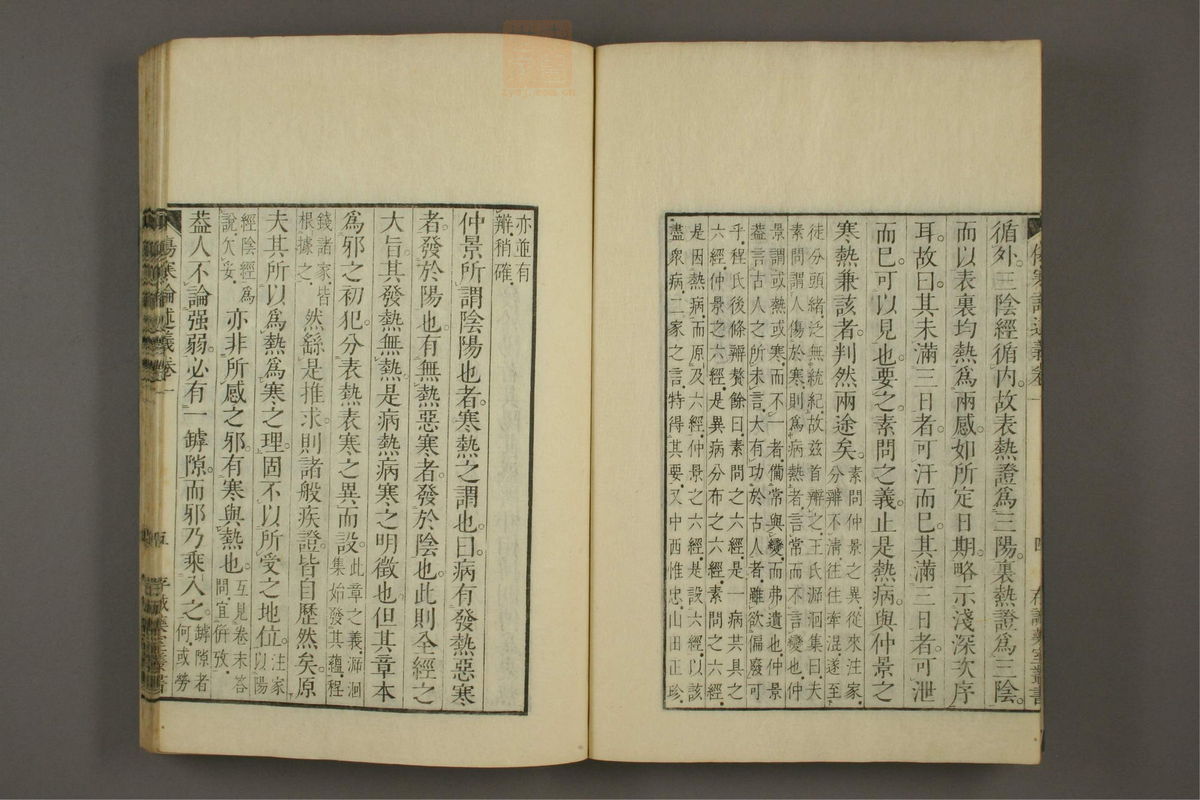 循外三陰經循内故表熱證爲三陽裏熱證爲三陰
而以表裏均熱爲兩感如所定日期略示淺深次序
耳故曰其未滿三日者可汗而已其滿三日者可泄
而已可以見也要之素問之義止是熱病與仲景之
寒熱兼該者判然兩途矣素問仲景之異從來注家
分辨不淸往往牽混遂至
徒分頭緒泛無統紀故兹首辨之王氏溯洄集曰夫
素問謂人傷於寒則爲病熱者言常而不言變也仲
景謂或熱或寒而不一者備常與變而弗遺也仲景
蓋言古人之所未言大有功於古人者雖欲偏廢可
乎程氏後條辨贅餘曰素問之六經是一病共具之
六經仲景之六經是異病分布之六經素問之六經
是因熱病而原及六經仲景之六經是設六經以該
盡衆病二家之言特得其要又中西惟忠山田正珍
亦並有
辨稍確
仲景所謂陰陽也者寒熱之謂也曰病有發熱惡寒
者發於陽也有無熱惡寒者發於陰也此則全經之
大旨其發熱無熱是病熱病寒之明徵也但其章本
爲邪之初犯分表熱表寒之異而設此章之義溯洄
集始發其蘊程
錢諸家皆
根據之
然繇是推求則諸般疾證皆自歷然矣原
夫其所以爲熱爲寒之理固不以所受之地位注家
以陽
經陰經爲
說欠妥
亦非所感之邪有寒與熱也互見卷末答
問宜併攷
蓋人不論强弱必有一罅隙而邪乃乘入之罅隙者
何或勞
傷寒論述義卷一
五